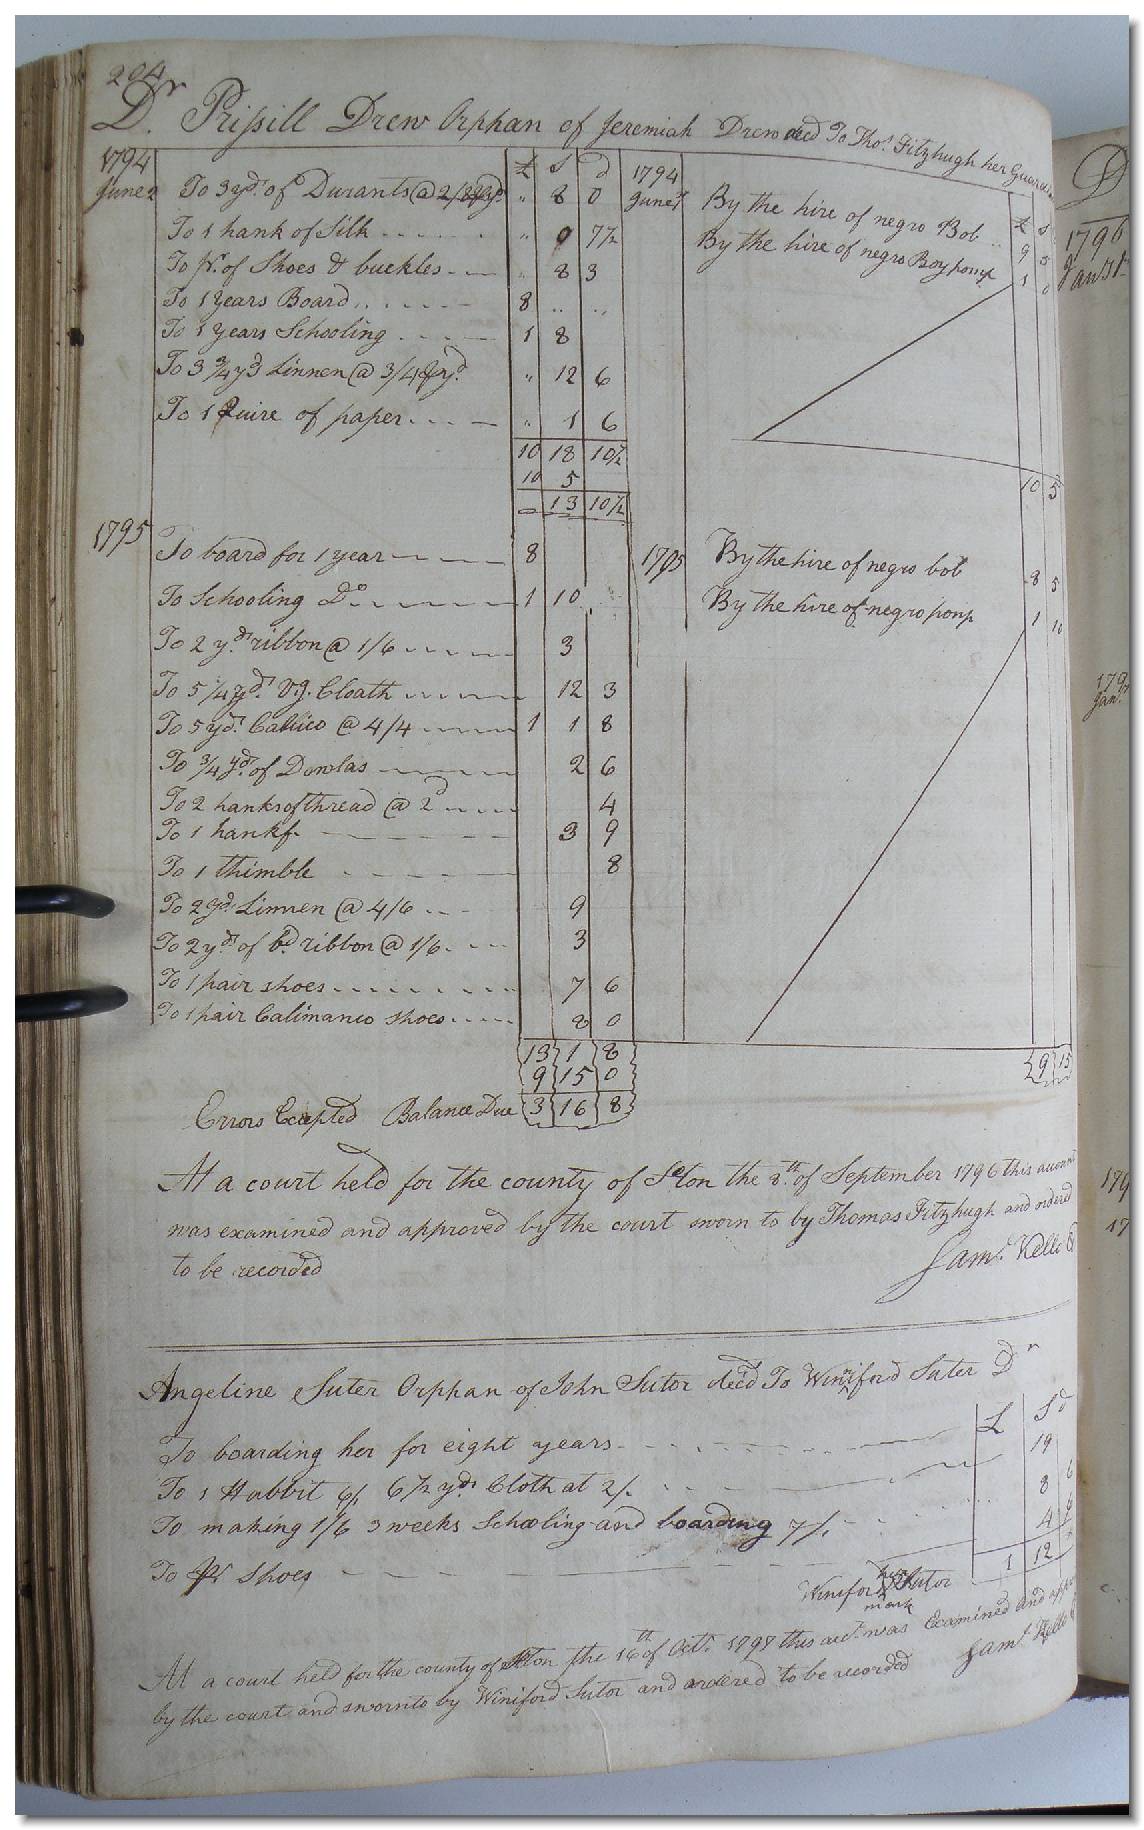 204
Dr. Prissill Drew Orphan of Jeremiah Drew decd To Thos. Fitzhugh her Guardian
1794 £ S d 1794
June 2 To 3 yds. of Durants @ 2/8 " 8 0 June By the hire of negro Bob .. 9 5
To 1 hank of Silk " 0 7½ By the hire of negro Boy pomp 1 0
To Pr. of Shoes & buckles " 8 3
To 1 years Board 8 .. ..
To 1 years Schooling 1 8
To 3¾ yds Linnen @ 3/4 p yd. " 12 6
To 1 Quire of paper " 1 6
10 18 10½
10 5 10 5
13 10½
1795
To board for 1 year 8 1795 By the hire of negro bob 8 5
To Schooling Do. 1 10 By the hire of negro pomp 1 10
To 2 yds. ribbon @ 1/6 3
To 5¼ yds. V.g. Cloath 12 3
To 5 yds. Callico @ 4/4 1 1 8
To ¾ yd. of Dowlas 2 6
To 2 hanks of thread @ 2d 4
To 1 hankf. 3 9
To 1 thimble 8
To 2 yds. Linnen @ 4/6 9
To 2 yds. of bd. ribbon @ 1/6 3
To 1 pair shoes 7 6
To 1 pair Calimanco shoes 8 0
13 1 8 9 15
9 15 0
Errors Excepted Balance Due 3 16 8
At a court held for the county of Ston the 8th of September 1796 this account
was examined and approved by the court sworn to by Thomas Fitzhugh and ordered
to be recorded
Saml. Kello
Angeline Suter Orphan of John Sutor decd To Winiford Suter Dr
£ S d
To boarding her for eight years 19
To 1 Habbit 6/. 6½ yds Cloth at 2/. 8 6
To making 1/6 3 weeks Schooling and boarding 7/. 4
To Pr Shoes 1 12
Winiford her mark Sutor
At a court held for the county of Ston the 16th of Octr. 1797 this acct. was Examined and
by the court and sworn to by Winiford Sutor and ordered to be recorded
Saml. Kello
1796